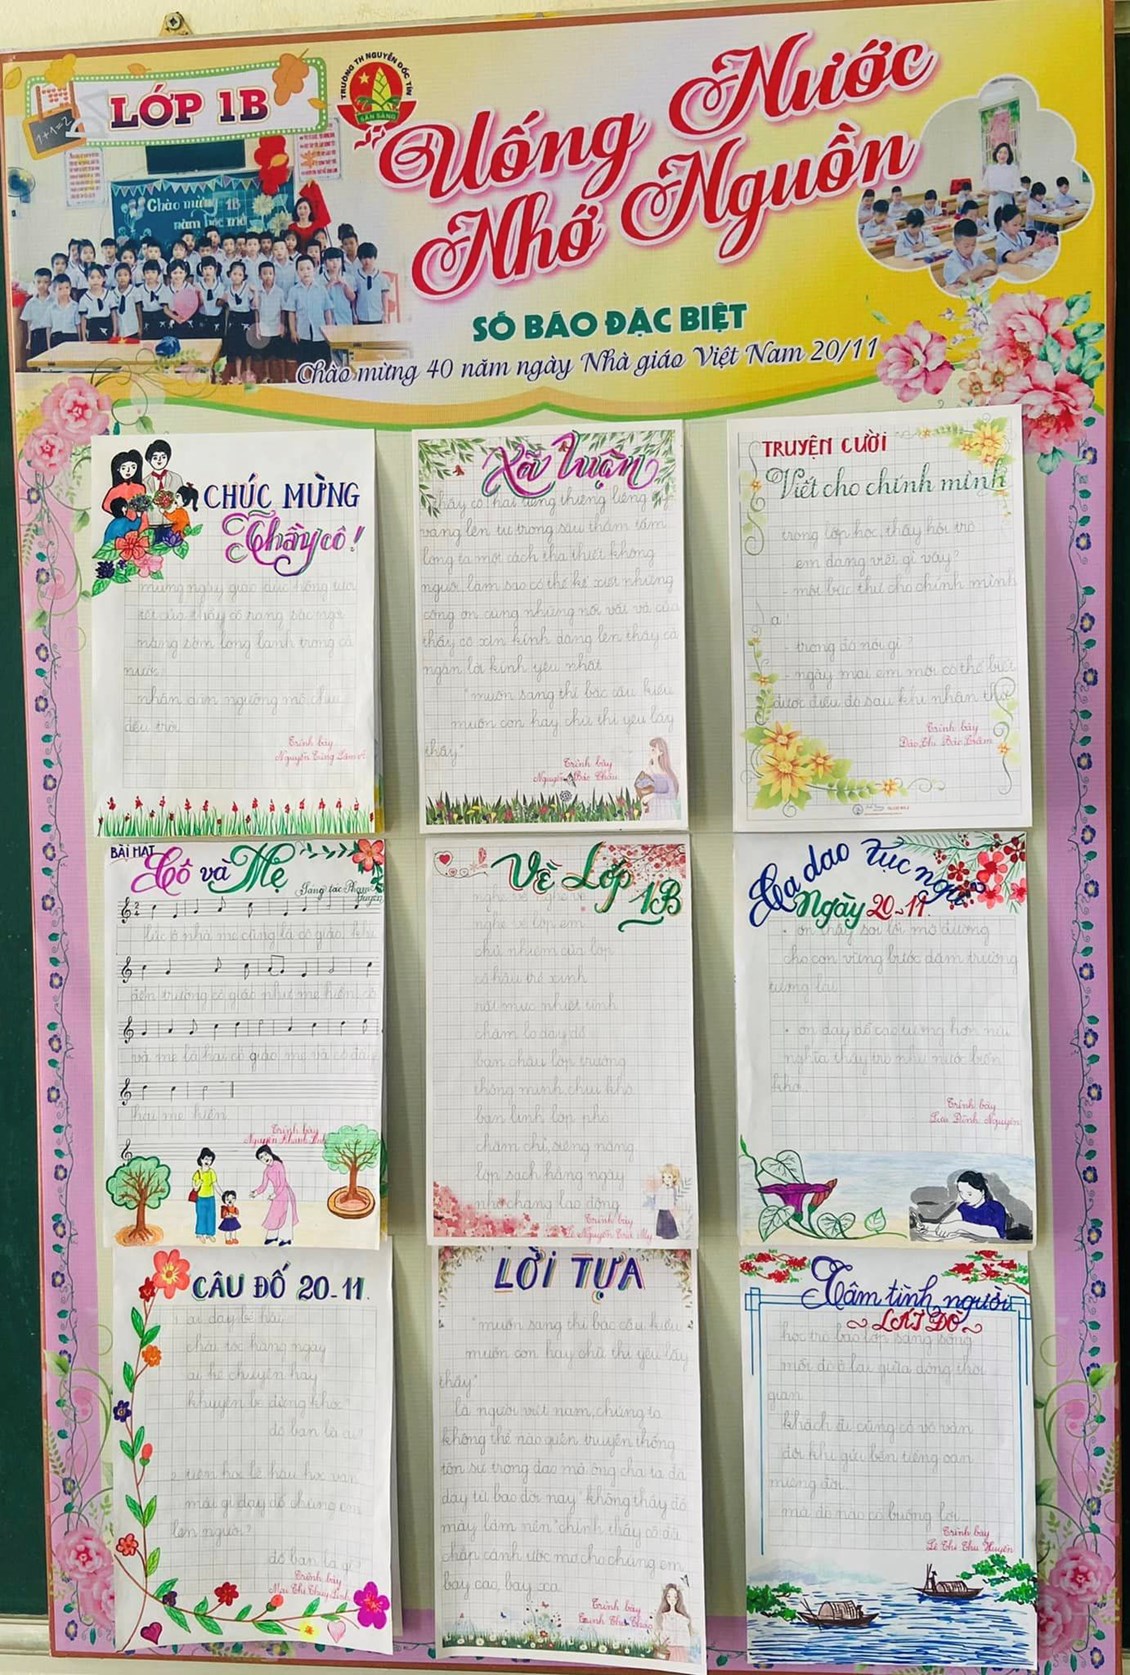 LỚP 1B
1+1=2
TRƯỜNG TH NGUYỄN ĐỐC TÍN
SẴN SÀNG
Chào mừng
năm học mới
Uống Nước
Nhớ Nguồn
SỐ BÁO ĐẶC BIỆT
Chào mừng 40 năm ngày Nhà giáo Việt Nam 20/11
CHÚC MỪNG
Thầy cô!
mừng ngày giáo dục hồng tươi
nắng sớm long lanh trong cả
nước
Trình bày
Xã luận
thầy cô! hai tiếng thiêng liêng ấy
vang lên từ trong sâu thẳm tấm
lòng ta một cách tha thiết không
người làm sao có thể kể xiết những
công ơn cùng những nỗi vất vả của
thầy cô xin kính dâng lên thầy cô
ngàn lời kính yêu nhất
"muốn sang thì bắc cầu kiều
muốn con hay chữ thì yêu lấy
thầy"
Trình bày
Nguyễn Bảo Châu
TRUYỆN CƯỜI
Viết cho chính mình
trong lớp học, thầy hỏi trò
em đang viết gì vậy?
- một bức thư cho chính mình
ạ!
- trong đó nói gì?
- ngày mai em mới có thể biết
được điều đó sau khi nhận thư
Trình bày
Đào Thị Bảo Trâm
BÀI HÁT
Cô và Mẹ
Sáng tác: Phạm
Tuyên
lúc ở nhà mẹ cũng là cô giáo, khi
đến trường cô giáo như mẹ hiền, cô
và mẹ là hai cô giáo, mẹ và cô ấy
hai mẹ hiền
Trình bày
Nguyễn Khánh Linh
Về Lớp
1B
nghe vẻ lớp em
chủ nhiệm của lớp
cô hậu trẻ xinh
rất mực nhiệt tình
chăm lo dạy dỗ
bạn châu lớp trưởng
thông minh chịu khó
bạn linh lớp phó
chăm chỉ, siêng năng
lớp sạch hàng ngày
nhờ chàng lao động
Trình bày
Ca dao Tục ngữ
Ngày 20-11.
. ơn thầy soi lối mở đường
cho con vững bước dặm trường
tương lai
. ơn dạy dỗ cao tựa ngọn núi
nghĩa thầy trò như nước biển
khơi
Trình bày
Lưu Đình Nguyên
CÂU ĐỐ 20-11.
1 ai dạy bé hát
chải tóc hàng ngày
ai kể chuyện hay
khuyên bé đừng khóc?
đố bạn là ai?
2 tiên học lễ hậu học văn
mái gì dạy dỗ chúng em
lên người?
đố bạn là gì?
Trình bày
Mai Thị Thùy Linh
LỜI TỰA
"muốn sang thì bắc cầu kiều
muốn con hay chữ thì yêu lấy
thầy"
là người việt nam, chúng ta
không thể nào quên truyền thống
tôn sư trọng đạo mà ông cha ta đã
dạy từ bao đời nay "không thầy đố
mày làm nên" chính thầy cô đã
chắp cánh ước mơ cho chúng em
bay cao, bay xa.
Trình bày
Trịnh Thu Thảo
Tâm tình người
LÁI ĐÒ
học trò bao lớp sang sông
mỗi đò ở lại giữa dòng thời
gian
khách đi cũng có vô vàn
đôi khi gửi bến tiếng oán
miệng đời
mà đò nào có buông lơi
Trình bày
Lê Thị Thu Huyền